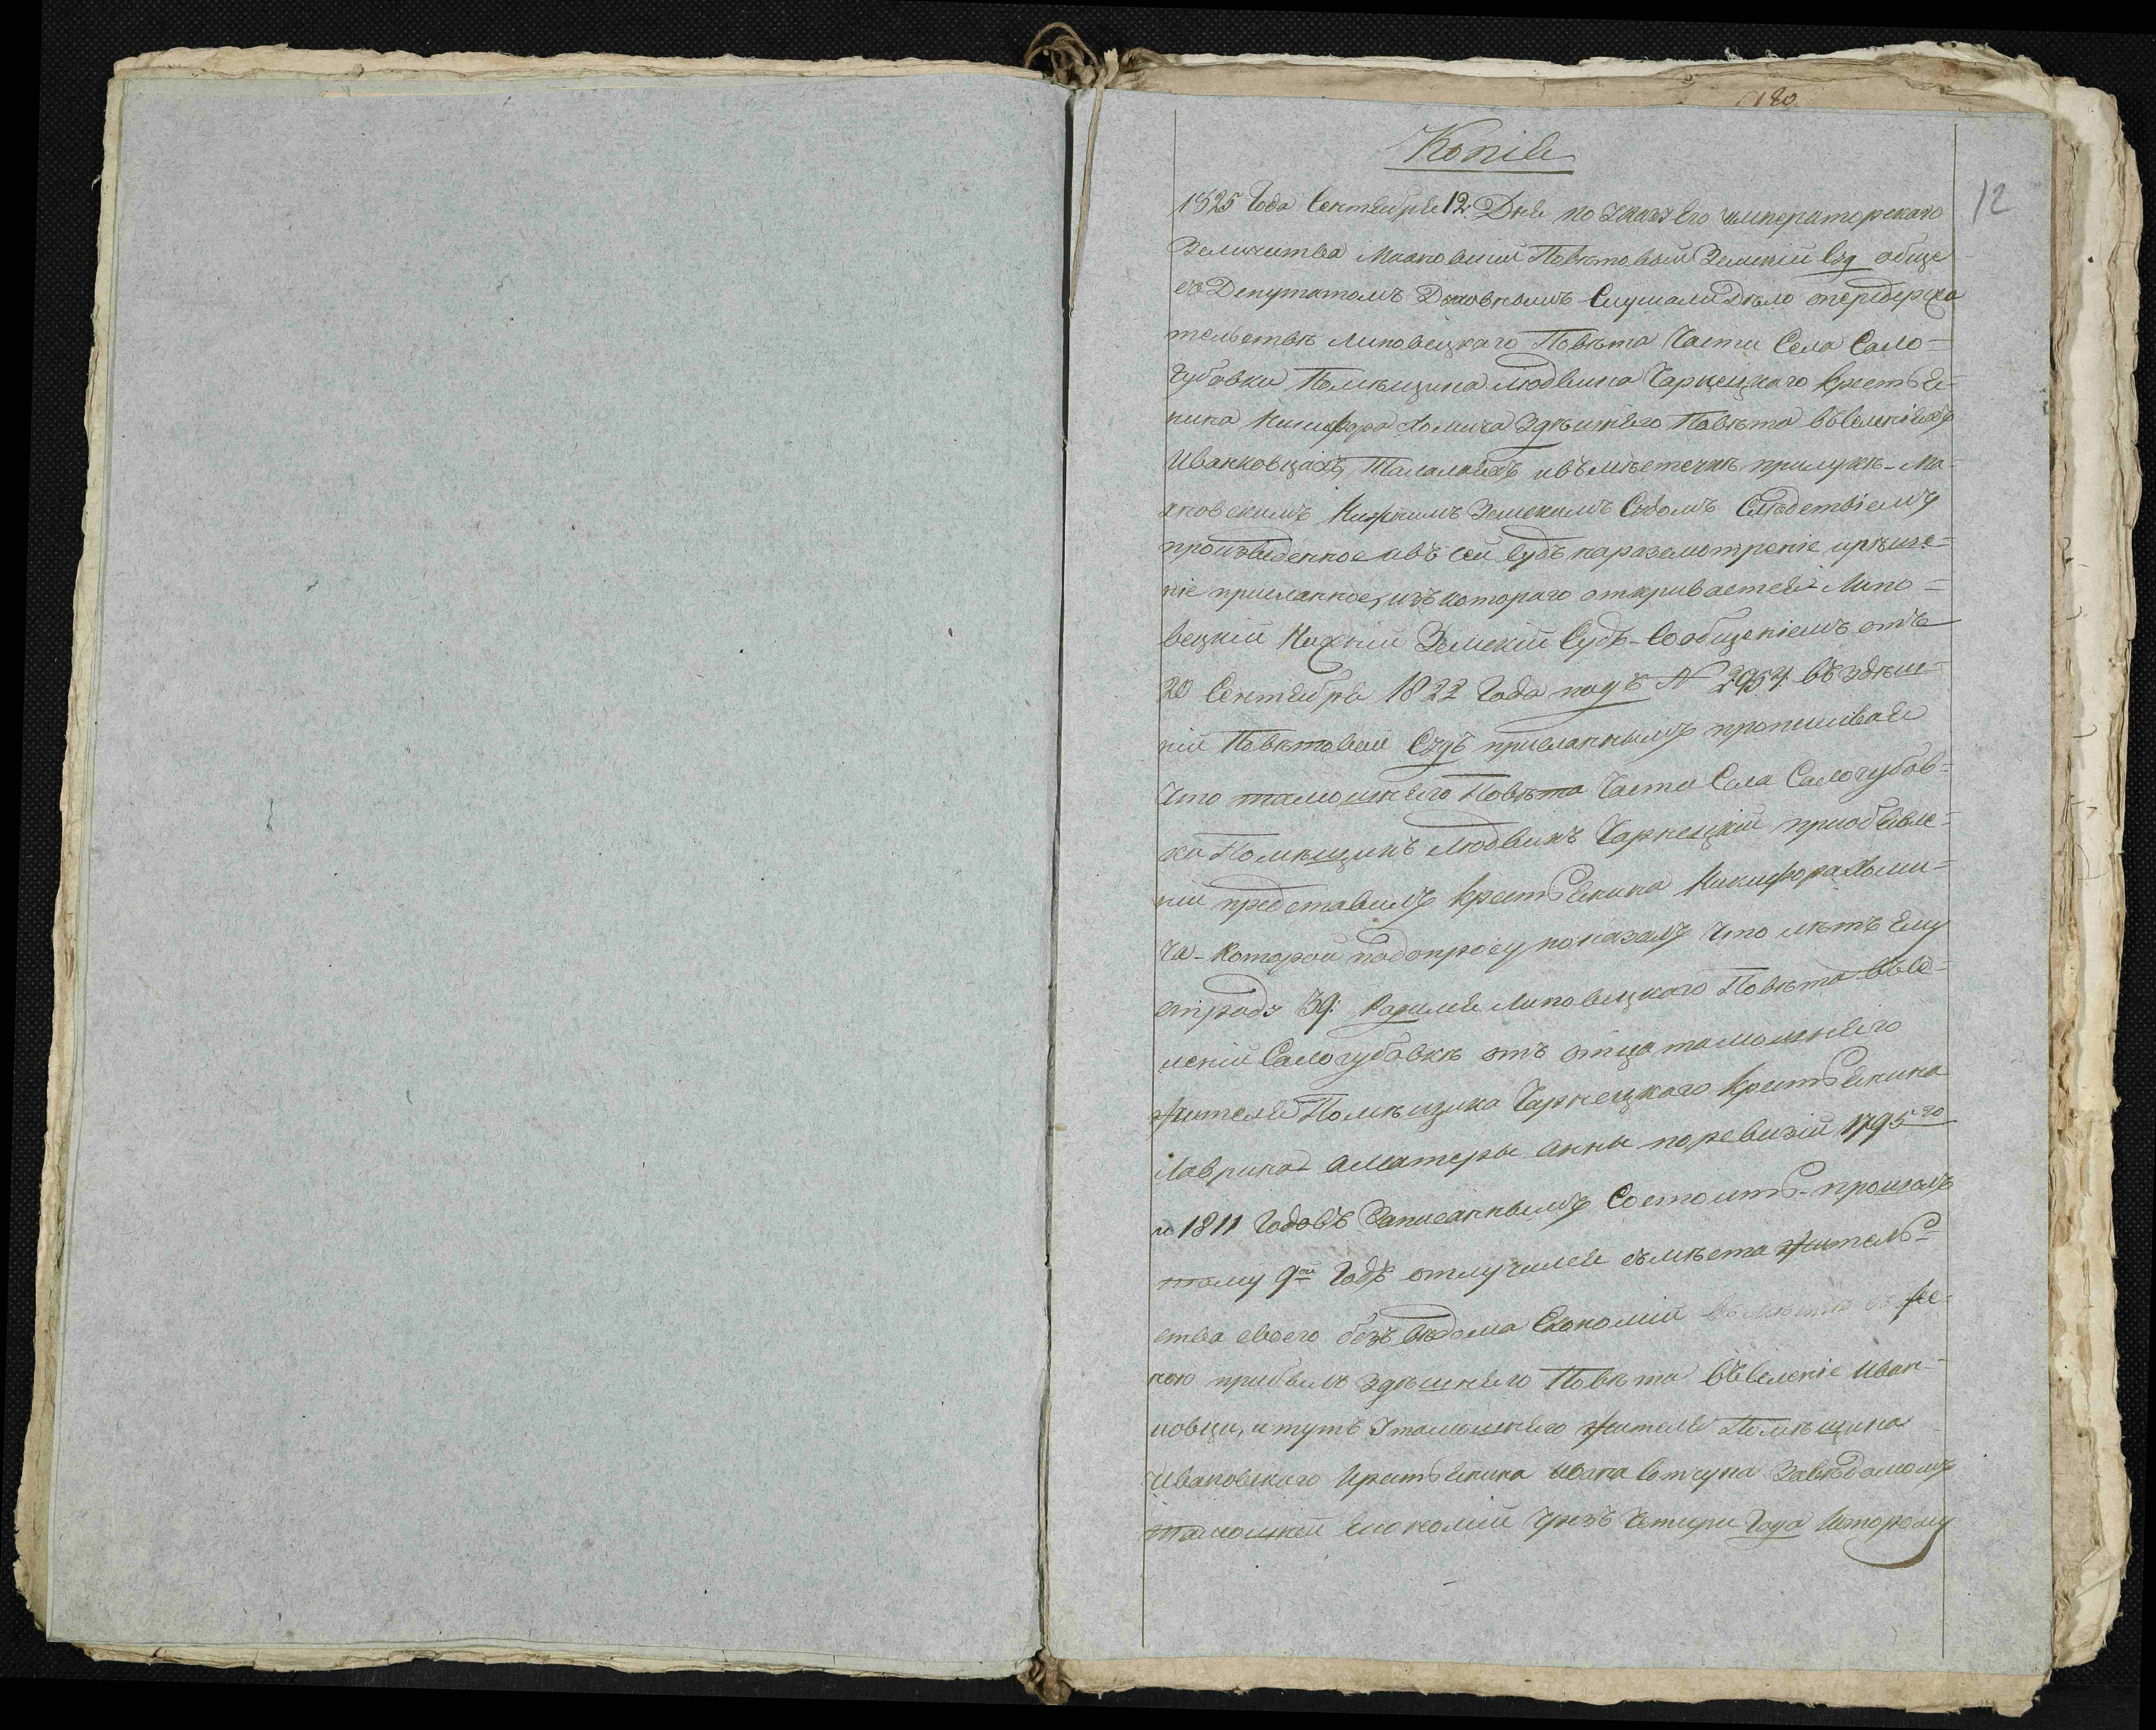 180
Копія
12
1825 Года Сентября 12 Дня по указу Его императорскаго
Величества Махновский Повѣтовый Земский Суд обще
съ Депутатомъ Духовнымъ Слушали Дѣло опередержа
тельствѣ Липовецкаго Повѣта Части Села Само-
губовки Помѣщика Людвика Чарнецкаго крестья-
нина Никифора Хомича здѣшняго Повѣта въселеніяхъ
Иванковцахъ, Талалаяхъ ивъмѣстечкѣ прилукѣ-Ма-
хновскимъ Нижнимъ Земскимъ Судомъ Слѣдствіемъ
произведенное ивъ сей Судъ наразсмотреніе ирѣше-
ніе присланное, изъ котораго открывается Липо-
вецкій Нижній Земскій Судъ-Сообщеніемъ отъ
20 Сентября 1822 Года подъ N 2954 въздѣш-
ній Повѣтовый Судъ присланнымъ прописывая
Что тамошняго Повѣта Части Села Самогубов-
ки Помѣщикъ Людвикъ Чарнецкій приобъявле-
нии представилъ крестьянина Никифора Хоми-
ча-которой подопросу показалъ Что лѣтъ Ему
отроду 39: Родился Липовецкаго Повѣта въсе-
леніи Самогубовкѣ отъ отца тамошняго
жителя Помѣщика Чарнецкаго крестьянина
Лаврика аматеры анны поревизіи 1795го
и 1811 Годовъ Записаннымъ Состоитъ-прошлъ
тому 9ой Годъ отлучился съмѣста житель-
ства своего безъ вѣдома Економии въ же-
ною прибылъ здѣшняго Повѣта въселеніе Иван-
ковцы, и тутъ Утамошняго жителя Помѣщика
Ивановскаго крестьянина Ивана Завѣдомомъ
тамошней Економии Чрезъ Четыри Года которому